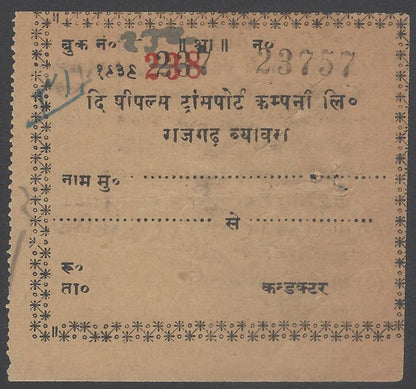 बुक नं० ॥श्री॥ नं०
१९३९ 238 23757
दि पीपल्स ट्रांसपोर्ट कम्पनी लि०
राजगढ़ ब्यावरा
नाम मु०
से
रू०
ता० कन्डक्टर